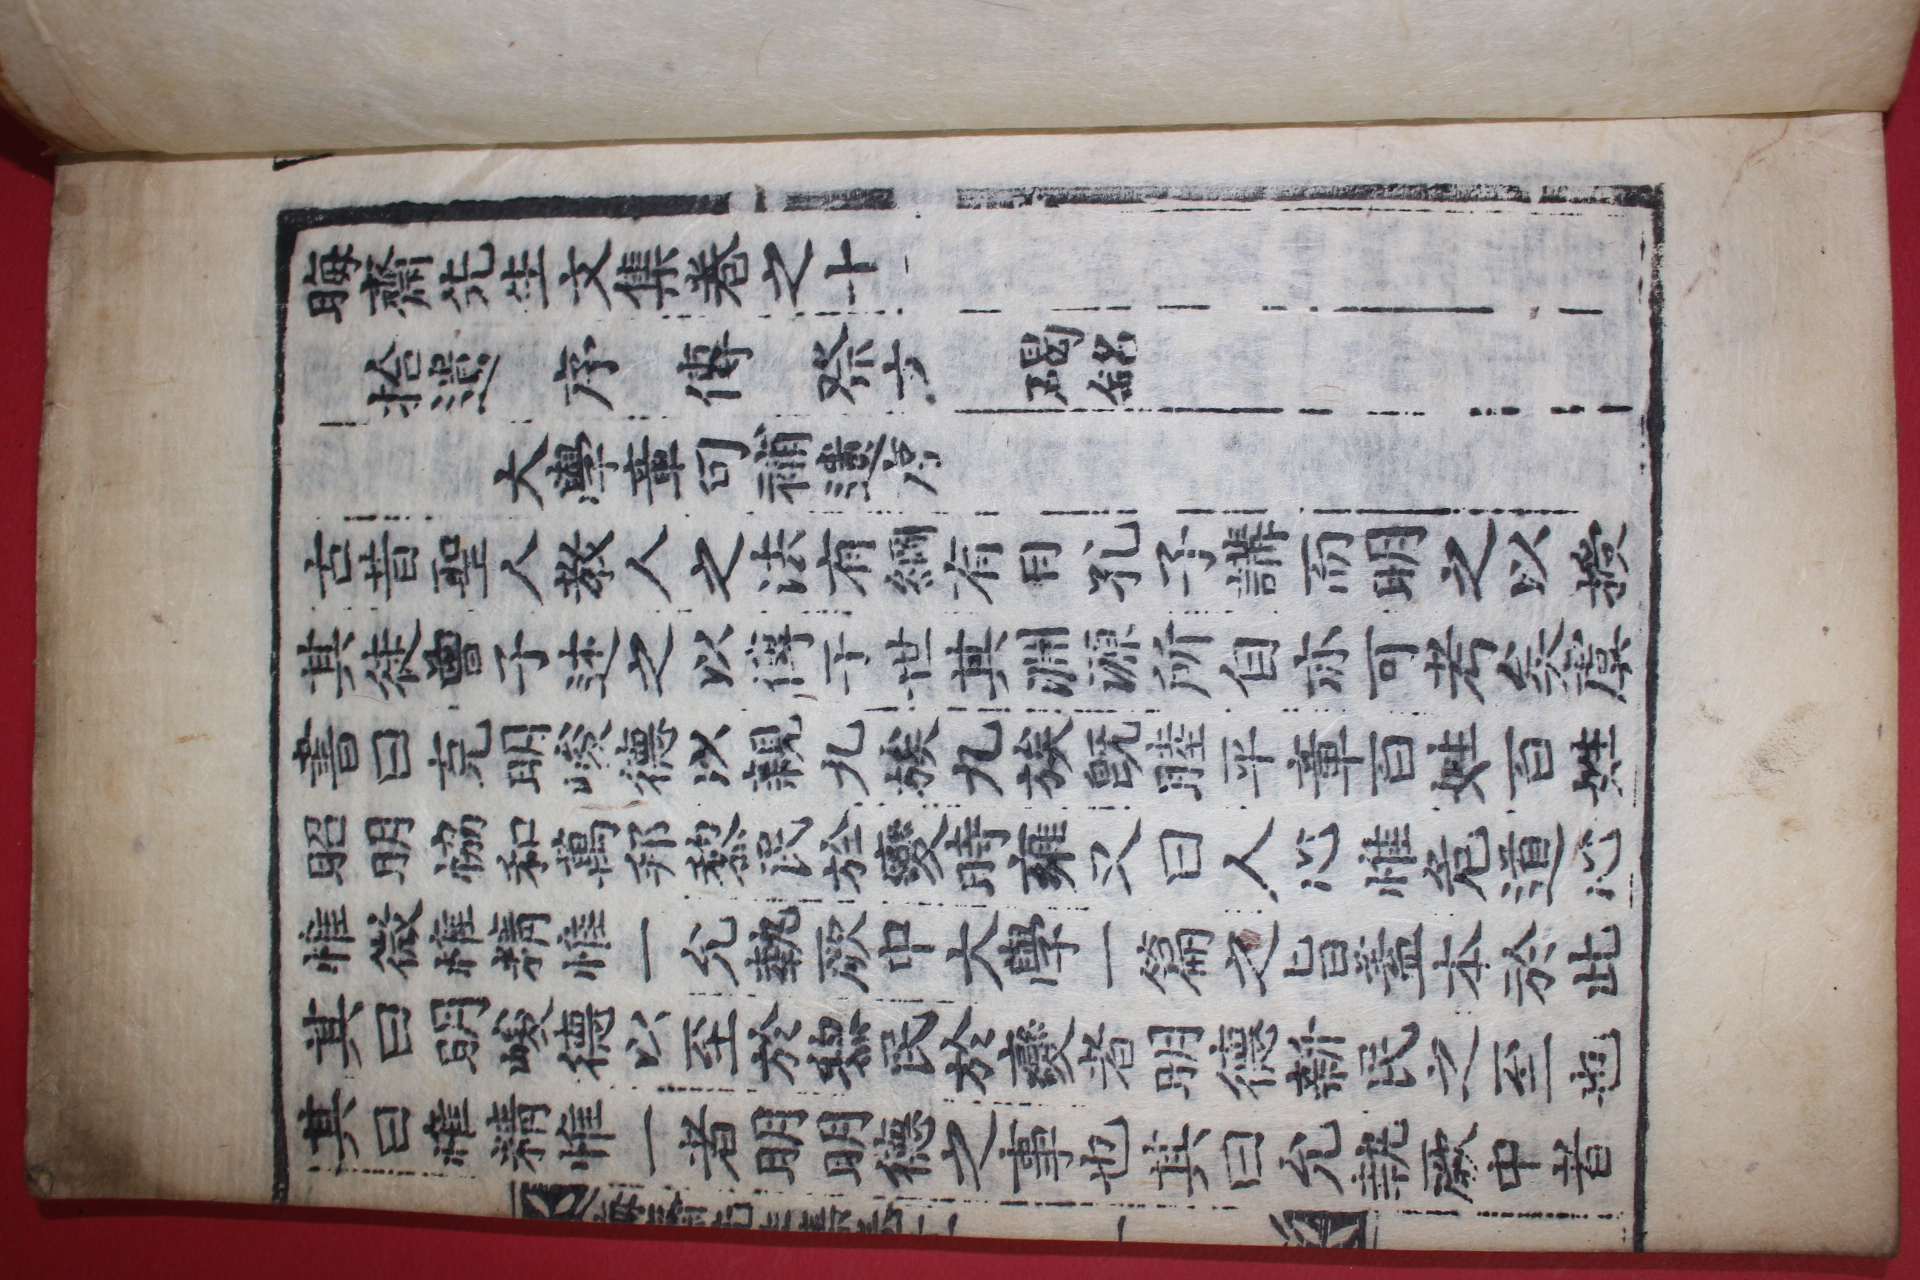 晦齋先生文集卷之十一
拾遺 序 傳 祭文 碣銘
大學章句補遺序
古昔聖人教人之法有綱有目孔子講而明之以授
其徒曾子述之以傳于世其淵源所自亦可考矣虞
書曰克明峻德以親九族九族旣睦平章百姓百姓
昭明恊和萬邦黎民於變時雍又曰人心惟危道心
惟微惟精惟一允執厥中大學一篇之旨盖本於此
其曰明峻德以至於黎民於變者明德新民之至也
其曰惟精惟一者明明德之事也其曰允執厥中者
晦齋先生集卷十一 一